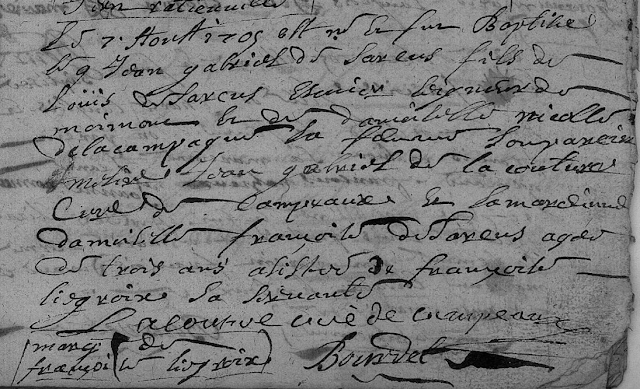 Le 7 Aout 1705 est né et fut Baptisé
le 9 Jean gabriel de Sarcus fils de
Louis de Sarcus Ecuier seigneur de
et de damoiselle nicolle
delacampagne sa femme son parein
Jean gabriel de la couture
Curé de Campeaux et la mareinne
damoiselle françoise de Sarcus agée
de trois ans assistée de françoise
liegroix sa servante
Lacouture curé de campeaux
marq de
françoise liegroix Bourdel